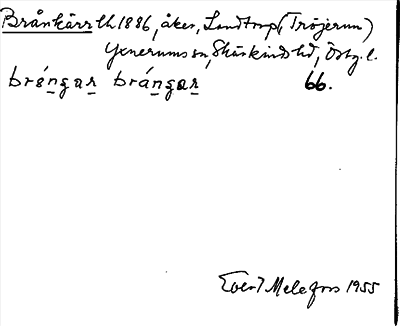 Brånkärr lh 1886, åker, Landtorp (Tröjerum)
Yxnerums sn, Skärkinds hd, Östg. l.
brȧngar brángar 66.
Evert Melefors 1955